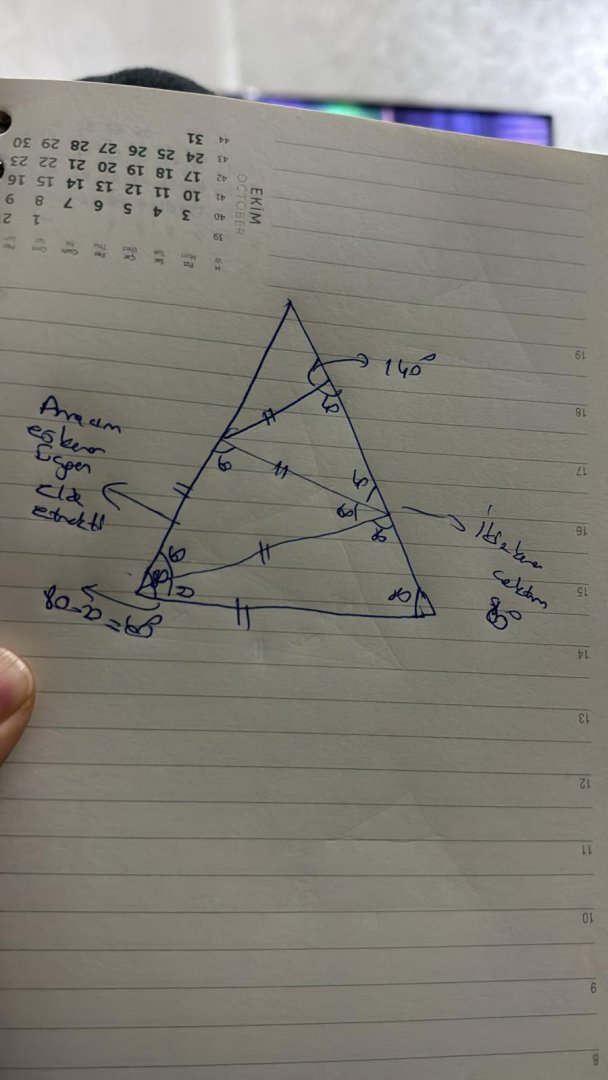 EKİM
OCTOBER
Pzt Sal Çar Per Cum
Mon Tue Wed Thu
39 1 2
40 3 4 5 6 7 8 9
41 10 11 12 13 14 15 16
42 17 18 19 20 21 22 23
43 24 25 26 27 28 29 30
44 31
8
9
10
11
12
13
14
15
16
17
18
19
140°
40
40
Amacım
eşkenar
üçgen
elde
etmekti
60
60
60
80
80
İkizkenar
80